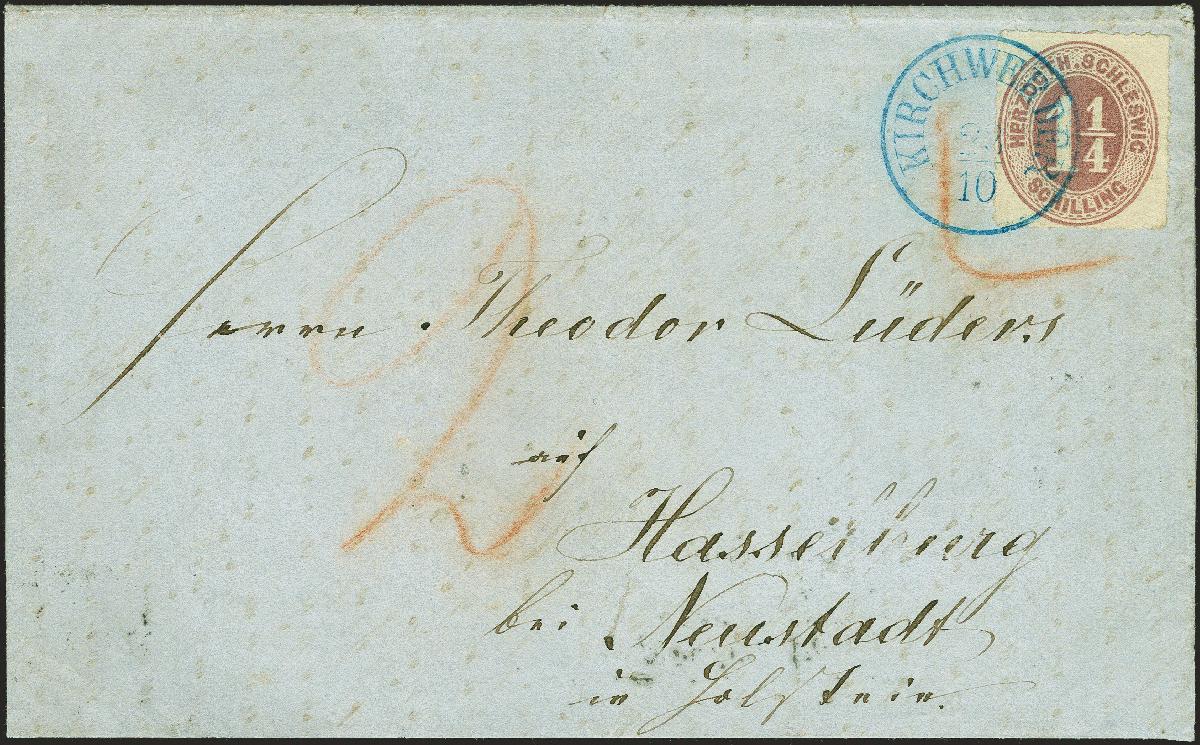 KIRCHWERDER
10
HERZOGTH. SCHLESWIG
1/4
SCHILLING
2
Herrn Theodor Lüders
auf
Hasselburg
bei Neustadt
in Holstein.